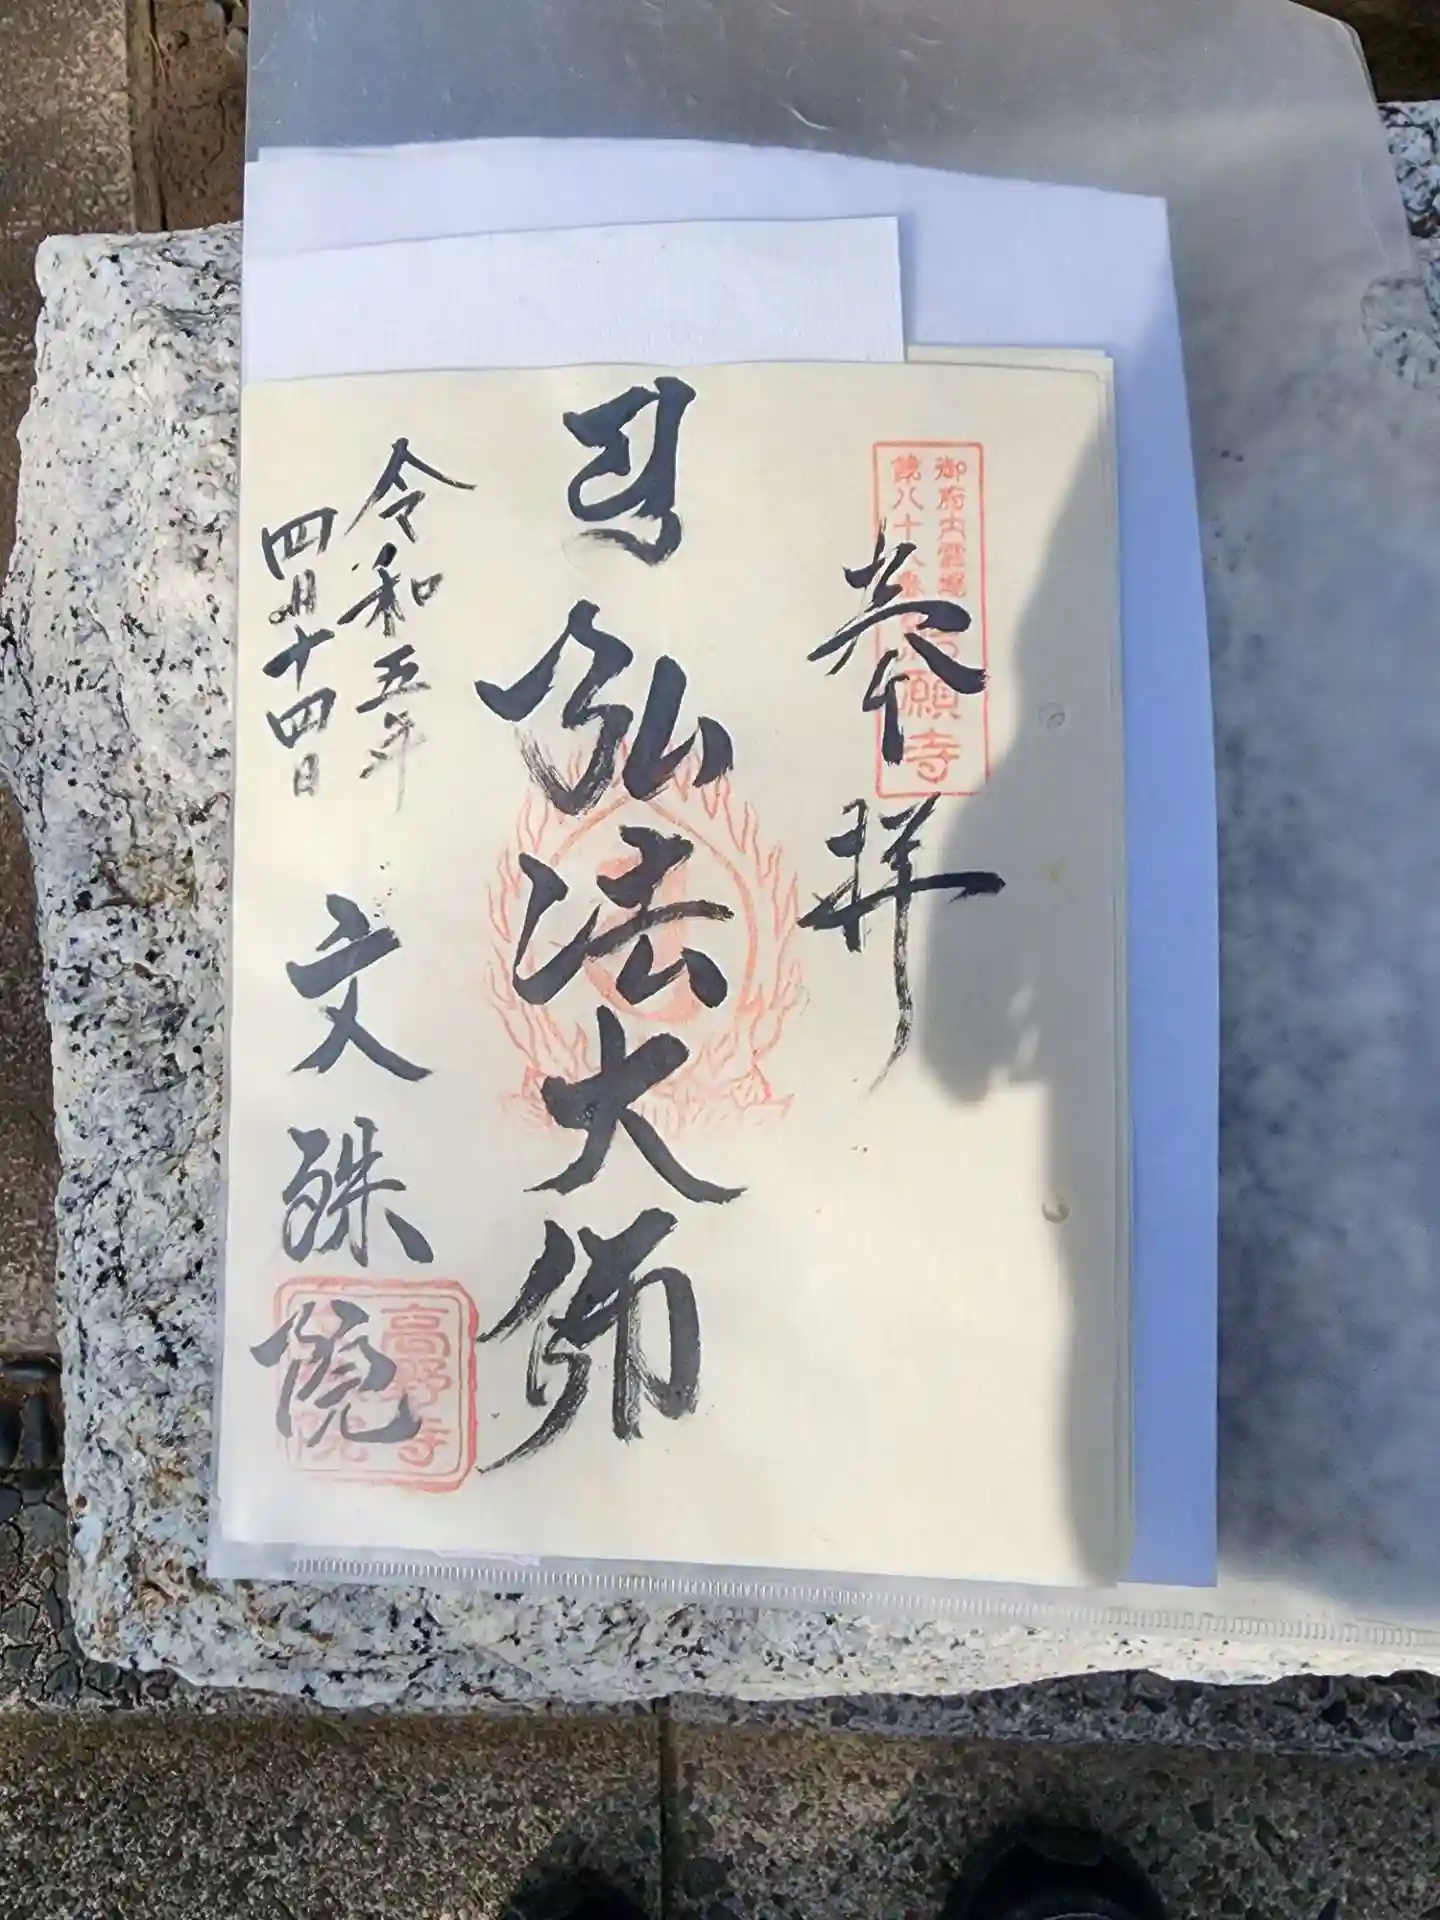 御府内霊場
第八十八番 結願寺
奉拝
弘法大師
令和五年
四月十四日
文殊院
高野寺